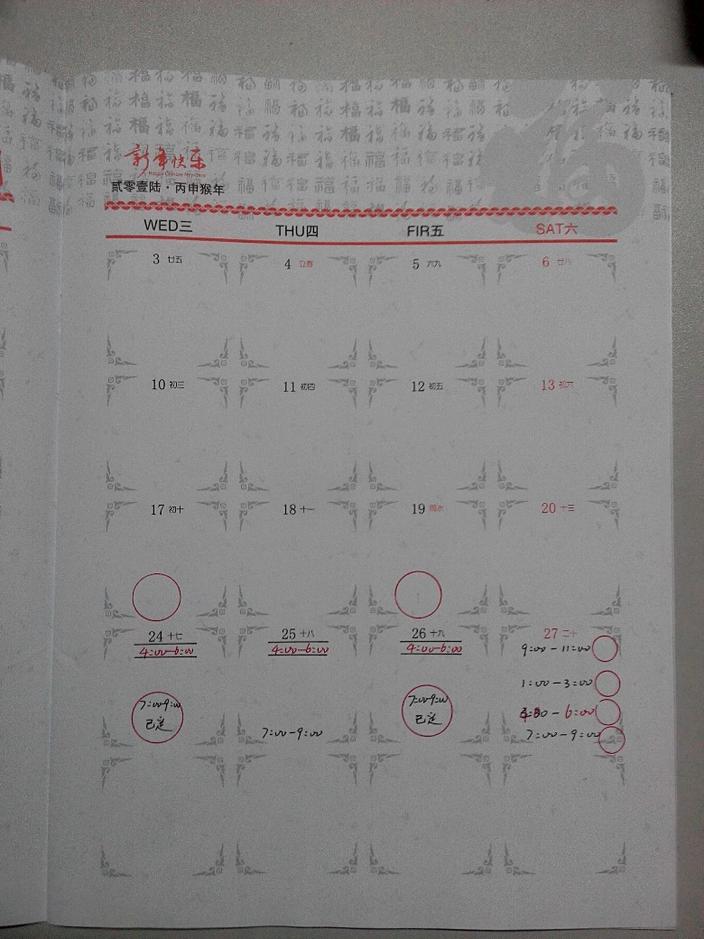 新年快乐
贰零壹陆·丙申猴年
WED三 THU四 FIR五 SAT六
3 廿五 4 立春 5 六九 6 廿八
10 初三 11 初四 12 初五 13 初六
17 初十 18 十一 19 雨水 20 十三
24 十七 25 十八 26 十九 27 二十
4:00-6:00 4:00-6:00 4:00-6:00 9:00-11:00
1:00-3:00
7:00-9:00 7:00-9:00 -6:00
已定 已定
7:00-9:00 7:00-9:00